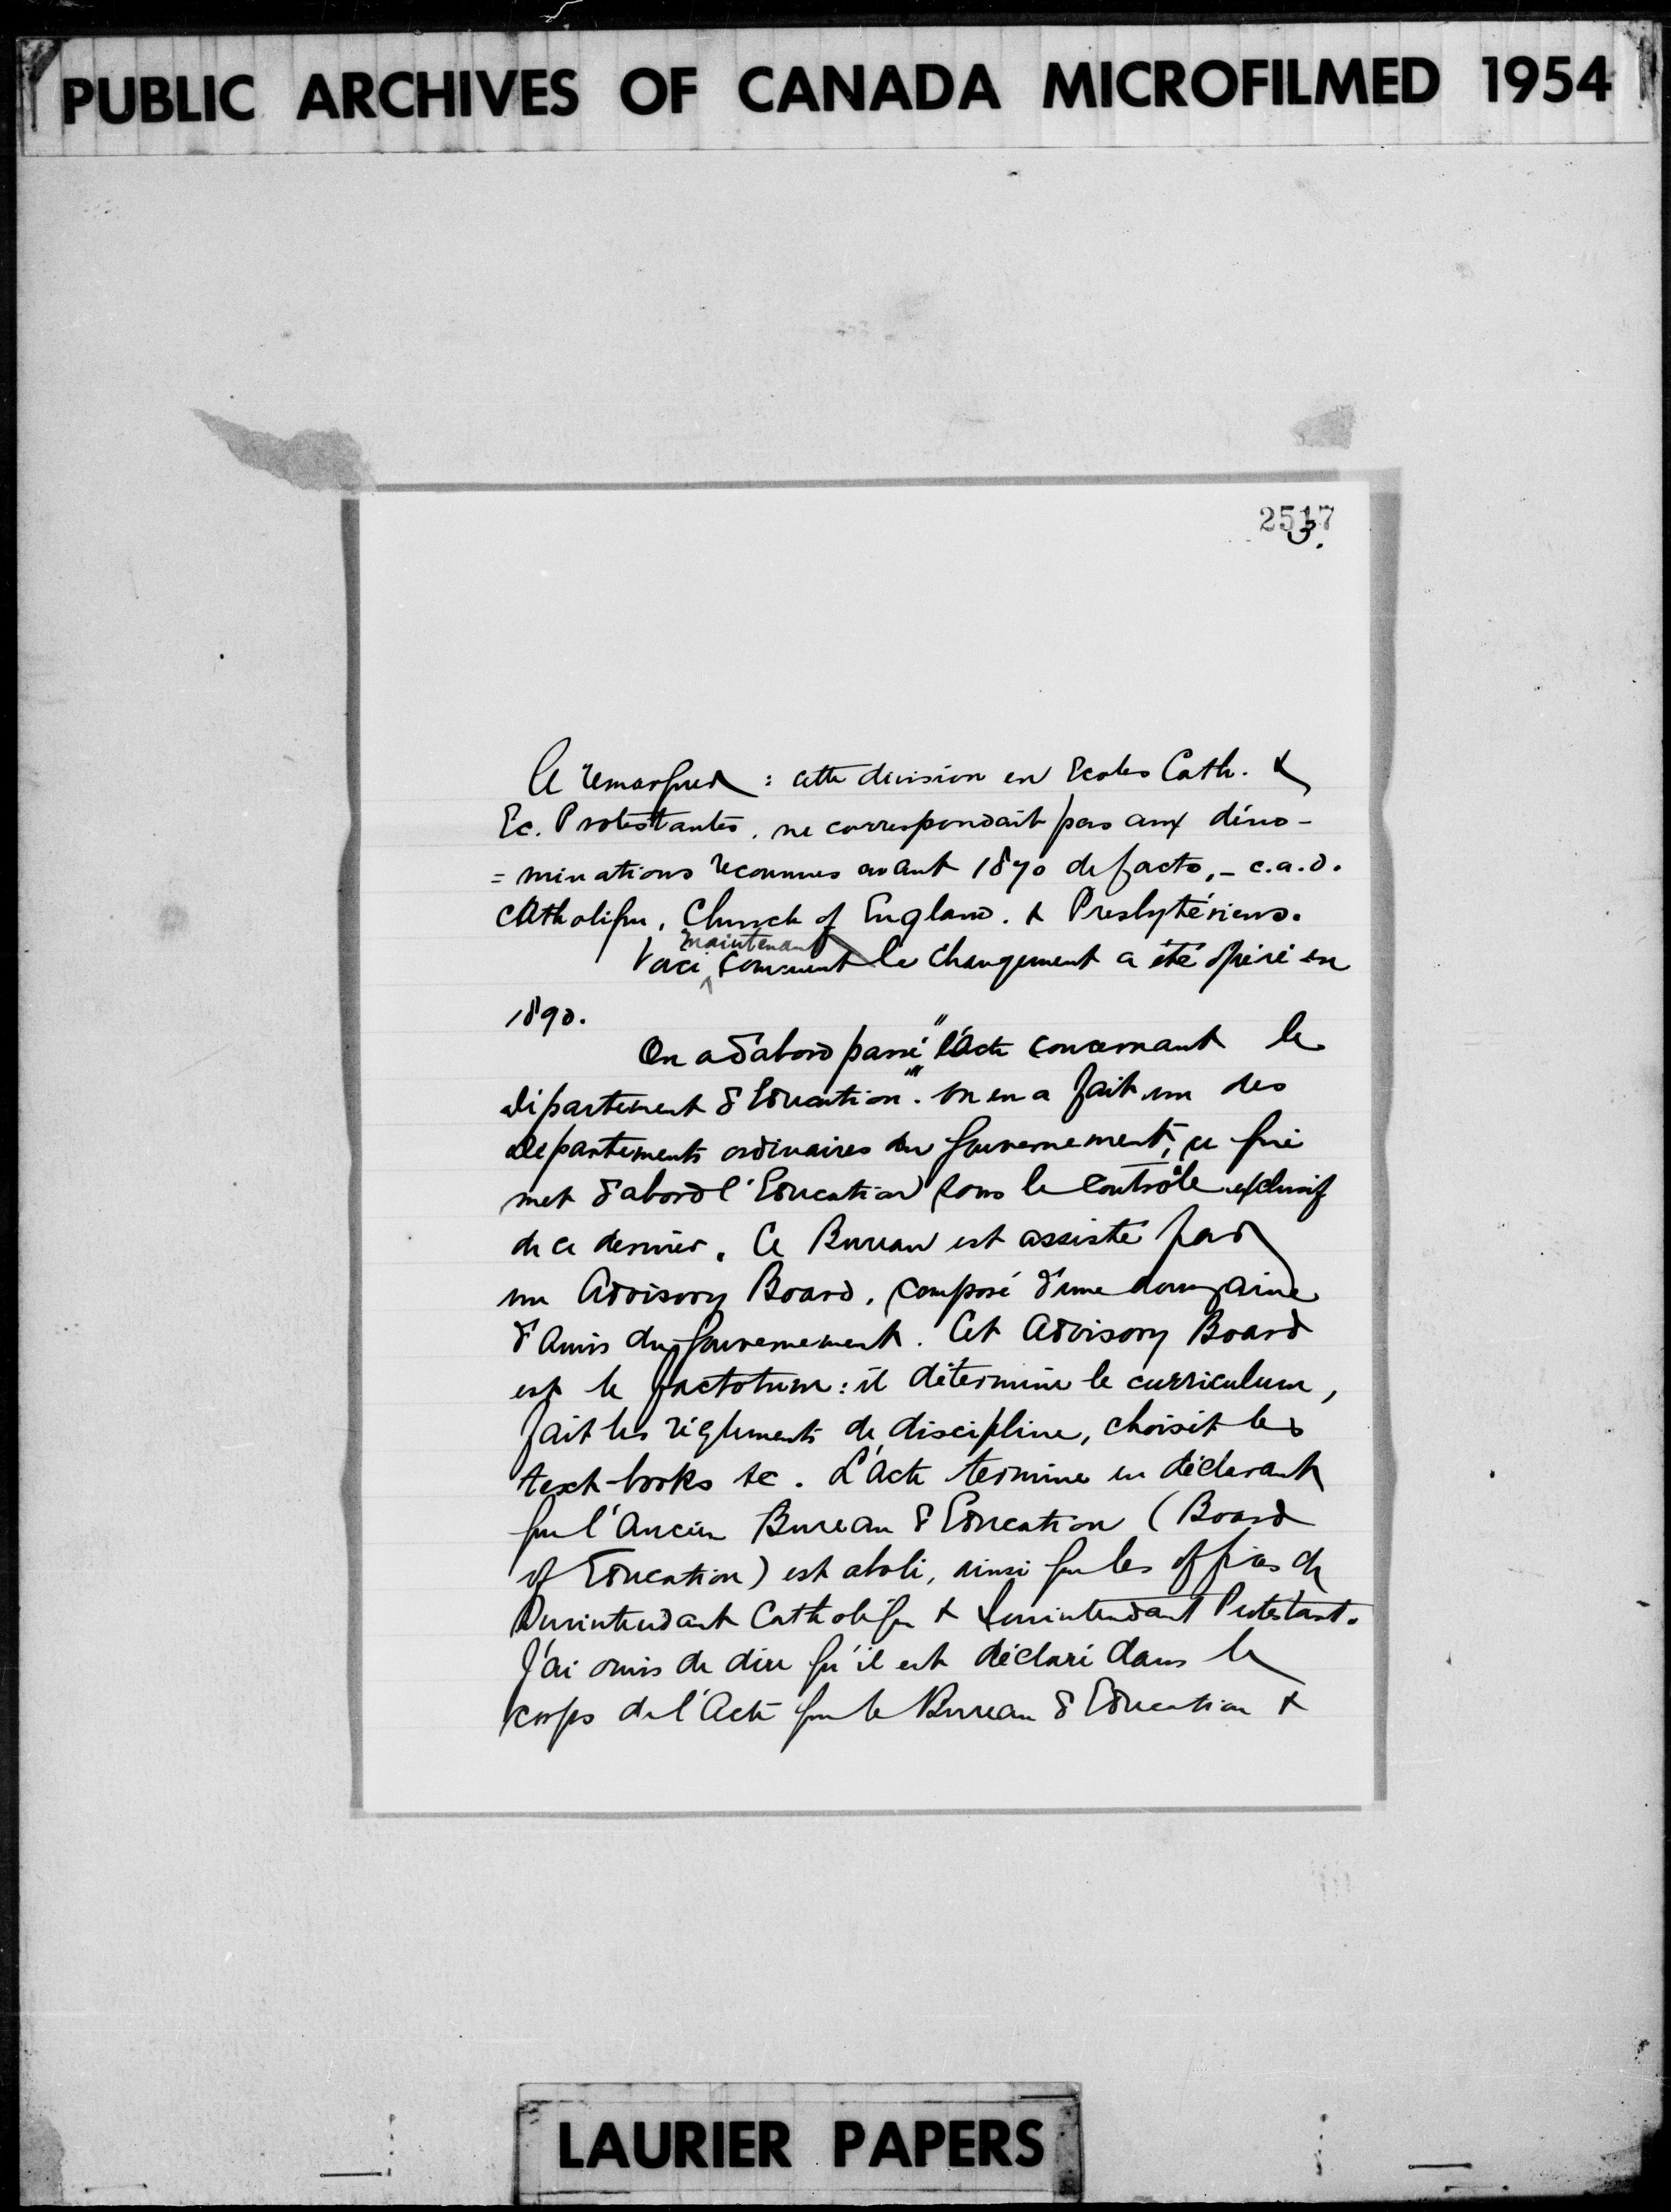 PUBLIC ARCHIVES OF CANADA MICROFILMED 1954
2517
3.
A remarquer : cette division en Ecoles Cath. &
Ec. Protestantes, ne correspondait pas aux déno-
= minations reconnues avant 1870 de facto, - c.a.d.
Catholique, Church of England. & Presbytériens.
Voici maintenant comment le changement a été opéré en
1890.
On a d'abord passé "l'Acte concernant le
département d'Education". On en a fait un des
départements ordinaires du Gouvernement, ce qui
met d'abord l'Education sous le contrôle exclusif
de ce dernier. Ce Bureau est assisté par
un Advisory Board, composé d'une douzaine
d'Amis du Gouvernement. Cet Advisory Board
est le factotum : il détermine le curriculum,
fait les règlements de discipline, choisit les
text-books &c. L'Acte termine en déclarant
que l'Ancien Bureau d'Education (Board
of Education) est aboli, ainsi que les offices de
Surintendant Catholique & Surintendant Protestant.
J'ai omis de dire qu'il est déclaré dans le
corps de l'Acte que le Bureau d'Education &
LAURIER PAPERS